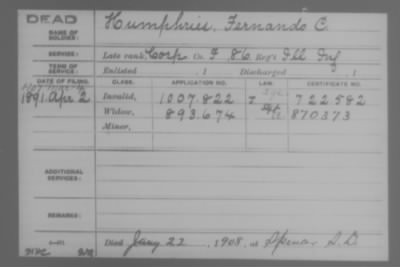 DEAD
NAME OF SOLDIER: Humphries, Fernando C.
SERVICE: Late rank, Corp. Co. F, 86 Reg't Ill Inf
TERM OF SERVICE: Enlisted , 1 Discharged , 1
DATE OF FILING. CLASS. APPLICATION NO. LAW. CERTIFICATE NO.
1891 Apr 2 Invalid, 1007.822 722582
Widow, 893.674 870373
Minor,
ADDITIONAL SERVICES:
REMARKS:
Died Jany 22, 1908, at Spencer S.D.